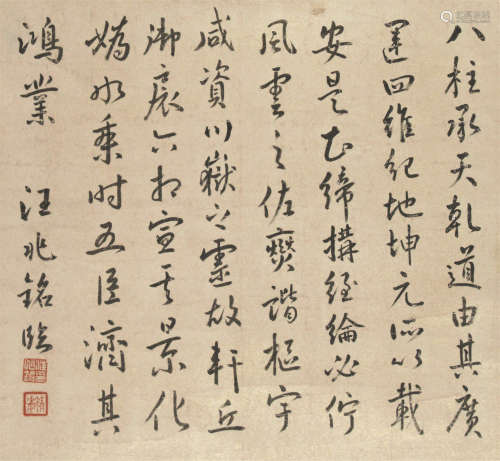 八柱承天乾道由其廣
運四維紀地坤元所以載
安是知締構經綸必佇
風雲之佐燮諧樞宇
咸資川嶽之靈故軒丘
御宸六相宣其景化
媯水乘时五臣濟其
鴻業 汪兆銘臨